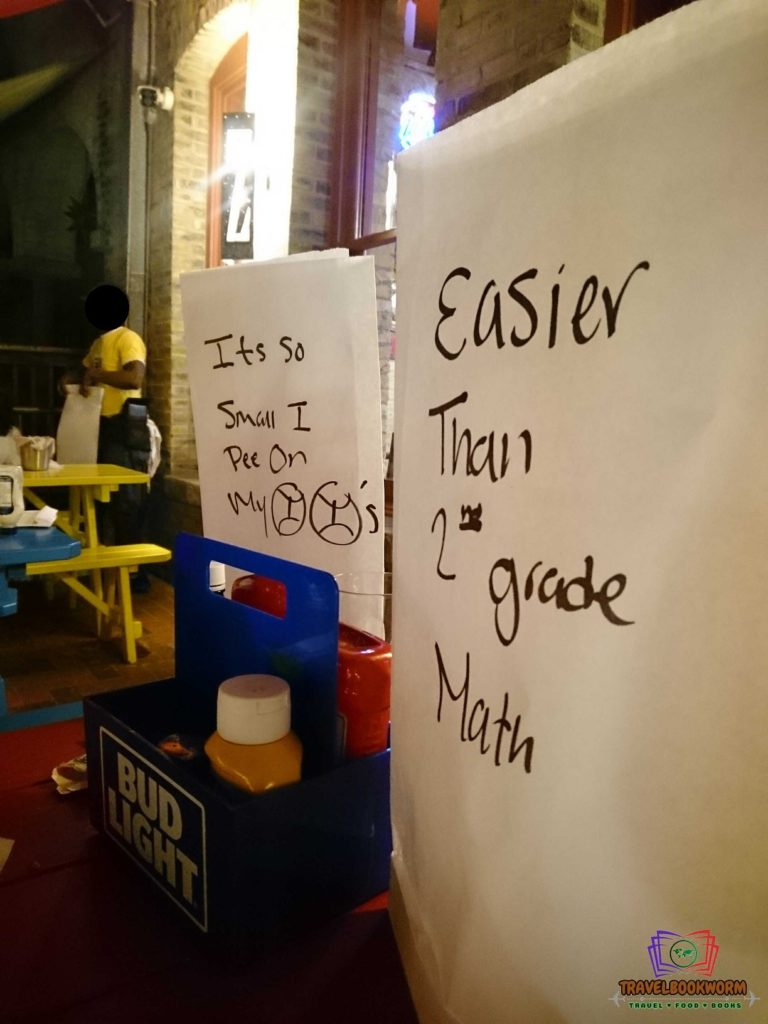 Its So
Small I
Pee On
My
's
Easier
Than
2nd
grade
Math
BUD
LIGHT
TRAVELBOOKWORM
TRAVEL • FOOD • BOOKS